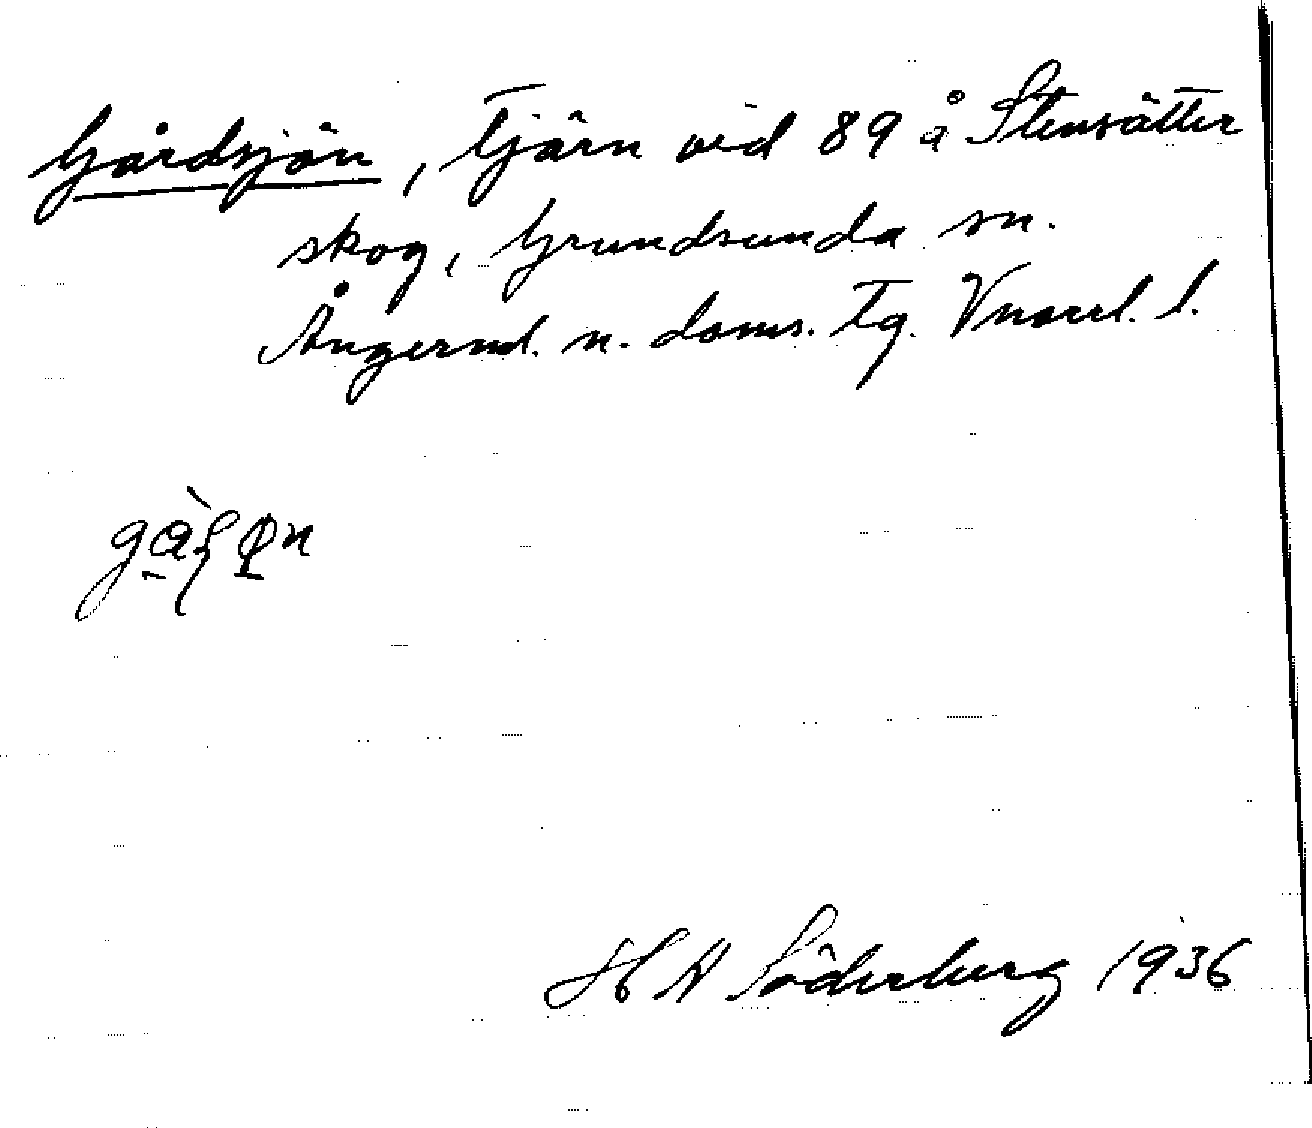 Gårdsjön, Tjärn vid 89 å Stensätter
skog, Grundsunda sn.
Ångerml. n. doms. Tg. Vnorrl. l.
H A Söderberg 1936